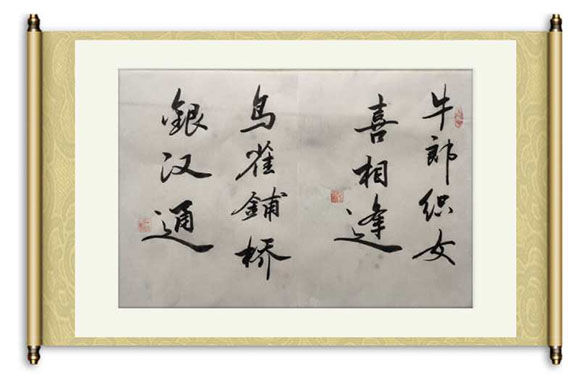 牛郎织女
喜相逢
鸟雀鋪桥
銀汉通